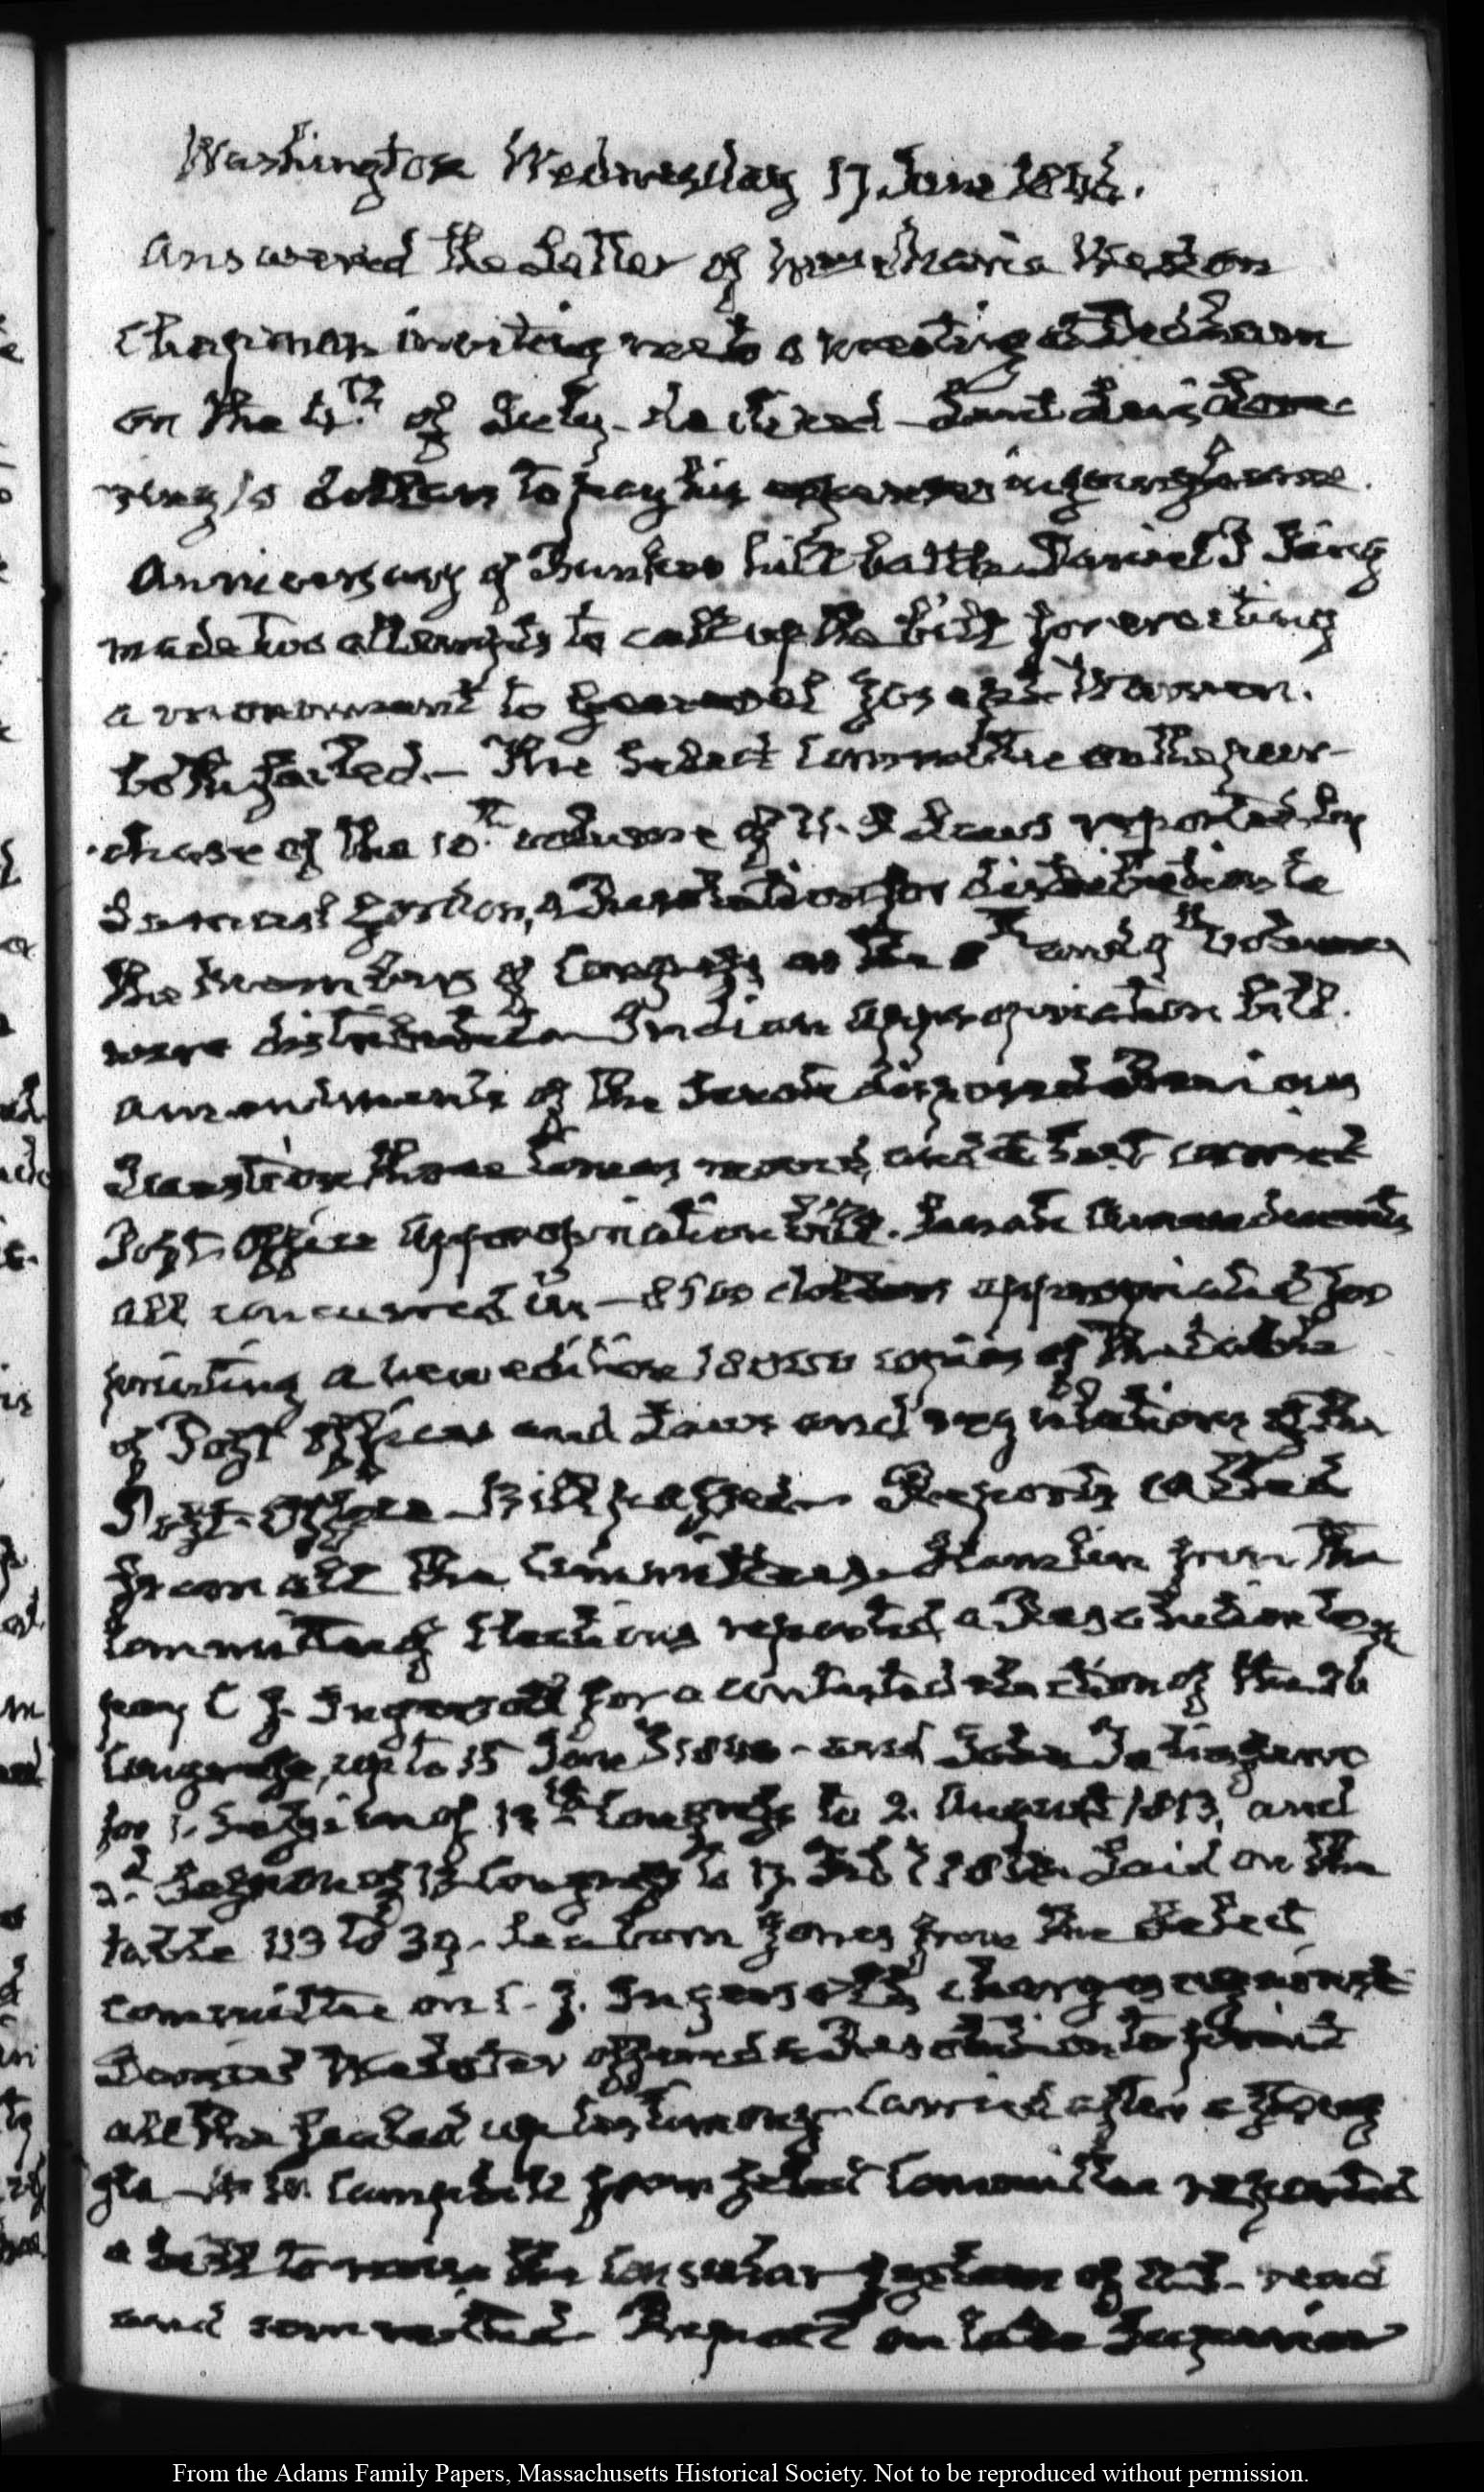 Washington Wednesday 17 June 1846.
Answered the Letter of Maria Weston
Chapman inviting me to a meeting at Dedham
on the 4th. of July. declined
dollars to pay his
Anniversary of Bunker hill battle Daniel P King
made two attempts to call up the bill for erecting
a monument to General Joseph Warren.
both failed. — The Select Committee on the pur-
chase of the 10th. volume of U.S. Laws reported by
Samuel Gordon, a Resolution for distribution to
the members of Congress as the 8th and 9th volumes
were distributed Indian appropriation bill.
amendments of the Senate disposed of previous
Question three times moved, and at last carried
Post-Office Appropriation bill. Senate Amendments
all concurred in — 8500 dollars appropriated for
printing a new edition 18000 copies of the table
of Post Offices and Laws and regulations of the
Post-Office — Bill passed. Reports called
from all the Committees. Hamlin from the
Committee of Elections reported, a Resolution to
pay C. J. Ingersoll for a contested election of the 26
Congress, up to 15 June 1840 — and John Taliaferro
for 1. Session of 13th Congress to 2. August 1813, and
2d. Session of 13 Congress to 17. Laid on the
table 113 to 39. Seaborn Jones from the Select
Committee on C. J. Ingersoll's charges against
Daniel Webster offered a Resolution to print
all the sealed up testimony — carried after a strug
gle — Campbell from Select Committee reported
a bill to the Consular System of U.S. read
and committed. Report on Lake Superior
From the Adams Family Papers, Massachusetts Historical Society. Not to be reproduced without permission.